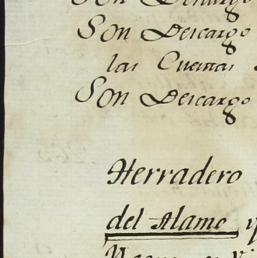 Son Descargo
Son Descargo
las Cuentas
Son Descargo
Herradero
del Alamo y